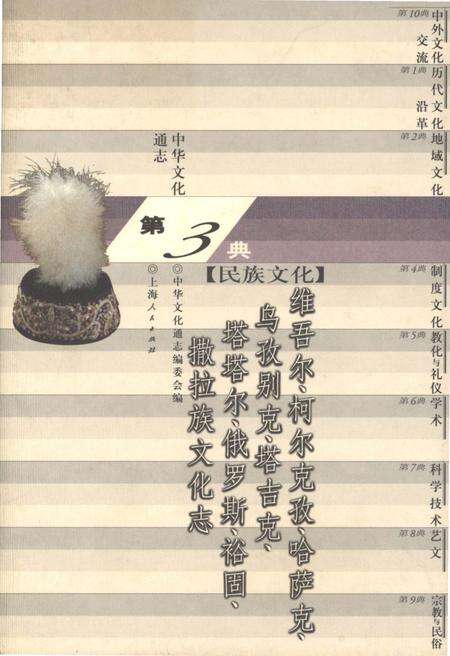 第10典
中外文化
交流
第1典
历代文化
沿革
第2典
地域文化
中华文化
通志
第3典
【民族文化】
维吾尔、柯尔克孜、哈萨克、
乌孜别克、塔吉克、
塔塔尔、俄罗斯、裕固、
撒拉族文化志
◎中华文化通志编委会编
◎上海人民出版社
第4典
制度文化
第5典
教化与礼仪
第6典
学术
第7典
科学技术
第8典
艺文
第9典
宗教与民俗